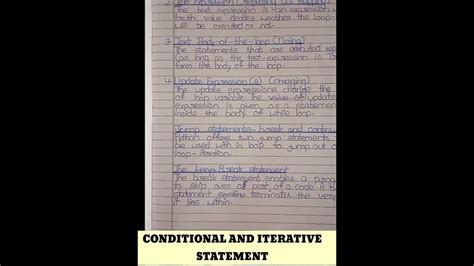 The test expression is
truth value decides weather the loop-
will be executed or not
3. Test Body-of-the-loop (Doing)
The statements that are executed
(as long as the test-expression is
form the body of the loop.
4. Update Expression(s) (Changing)
The update expressions change the
of loop variable. The value of update
expression is given, as a statement
inside the body of while loop.
Jump statements-break and continue
Python offers two jump statements
be used with in loop to jump out
loop-iteration.
The Break statement
The break statement enables a
to skip over part of a code. A
statement terminates the very
it lies within.
CONDITIONAL AND ITERATIVE
STATEMENT